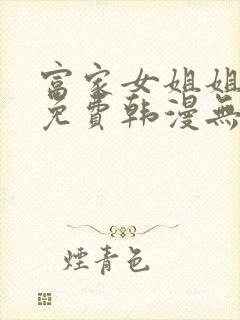 富家女姐姐
免費韩漫無
煙青色